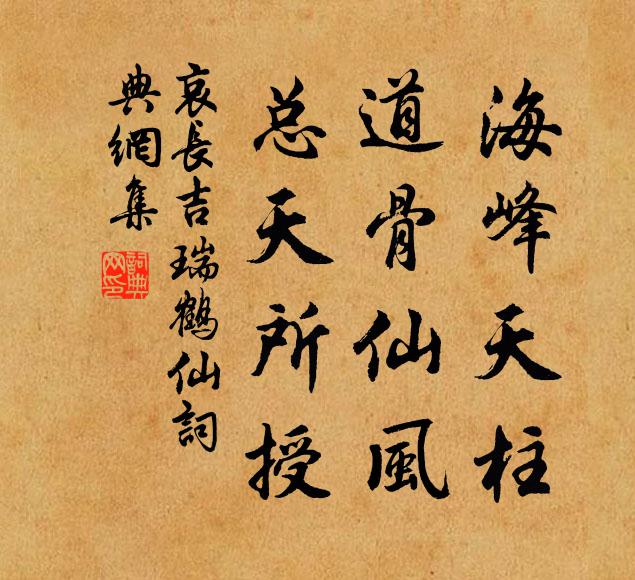 海峰天柱
道骨仙風
总天所授
哀長吉瑞鶴仙詞
典網集
詞典网印